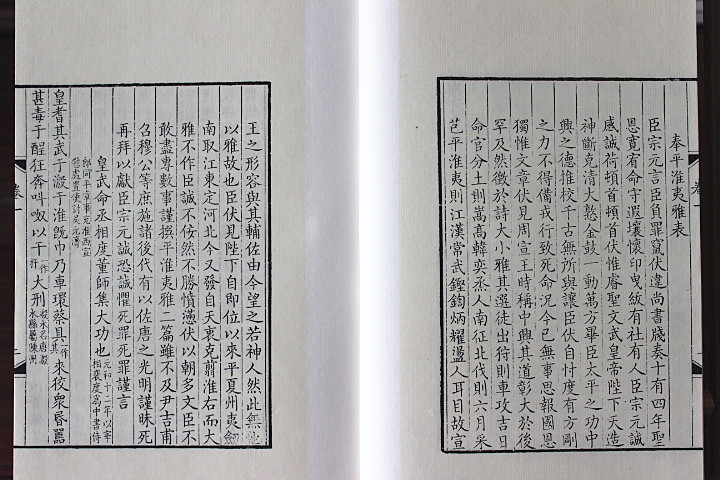 奏平淮夷雅表
臣宗元言臣負罪竄伏違尚書牋奏十有四年聖
恩寬宥命守遐壤懷印曳紱有社有人臣宗元誠
感誠荷頓首頓首伏惟睿聖文武皇帝陛下天造
神斷克清大憝金鼓一動萬方畢臣太平之功中
興之德推校千古無所與讓臣伏自忖度有方剛
之力不得備戎行致死命況今已無事思報國恩
獨惟文章伏見周宣王時稱中興其道彰大於後
罕及然徵於詩大小雅其選徒出狩則車攻吉日
命官分土則嵩高韓奕烝人南征北伐則六月采
芑平淮夷則江漢常武鏗鍧炳耀盪人耳目故宣
王之形容與其輔佐由今望之若神人然此無他
以雅故也臣伏見陛下自即位以來平夏州夷劍
南取江東定河北今又發自天衷克翦淮右而大
雅不作臣誠不佞然不勝憤懣伏以朝多文臣不
敢盡專數事謹撰平淮夷雅二篇雖不及尹吉甫
召穆公等庶施諸後代有以佐唐之光明謹昧死
再拜以獻臣宗元誠恐誠懼死罪死罪謹言
皇武命丞相度董師集大功也元和十二年以宰相裴度為中書侍
郎同平章事充淮西宣慰處置使討吳元濟
皇耆其武于溵于淮既巾乃車環蔡其來狡眾昏嚚
甚毒于酲狂奔叫呶以干大刑
卷一